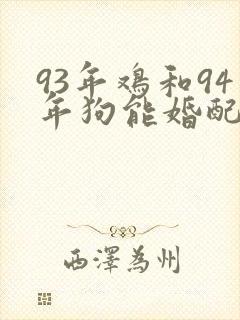 93年鸡和94
年狗能婚配
西澤為州